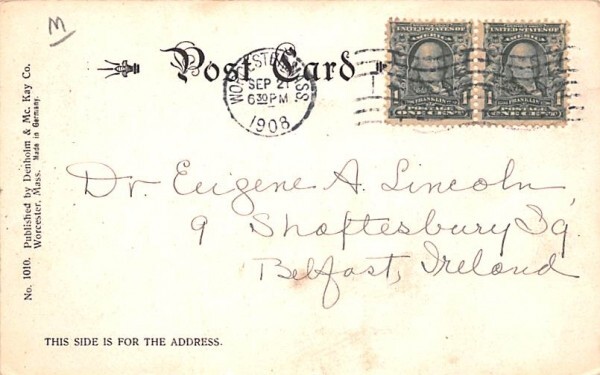 M
Post Card
WORCESTER, MASS
SEP 21
6 30 PM
1908
UNITED STATES OF
AMERICA
FRANKLIN
1 1
POSTAGE
ONE CENT
UNITED STATES OF
AMERICA
FRANKLIN
1 1
POSTAGE
ONE CENT
Dr. Eugene A. Lincoln,
9 Shaftesbury Sq.
Belfast, Ireland
No. 1010. Published by Denholm & Mc. Kay Co.
Worcester, Mass. Made in Germany.
THIS SIDE IS FOR THE ADDRESS.